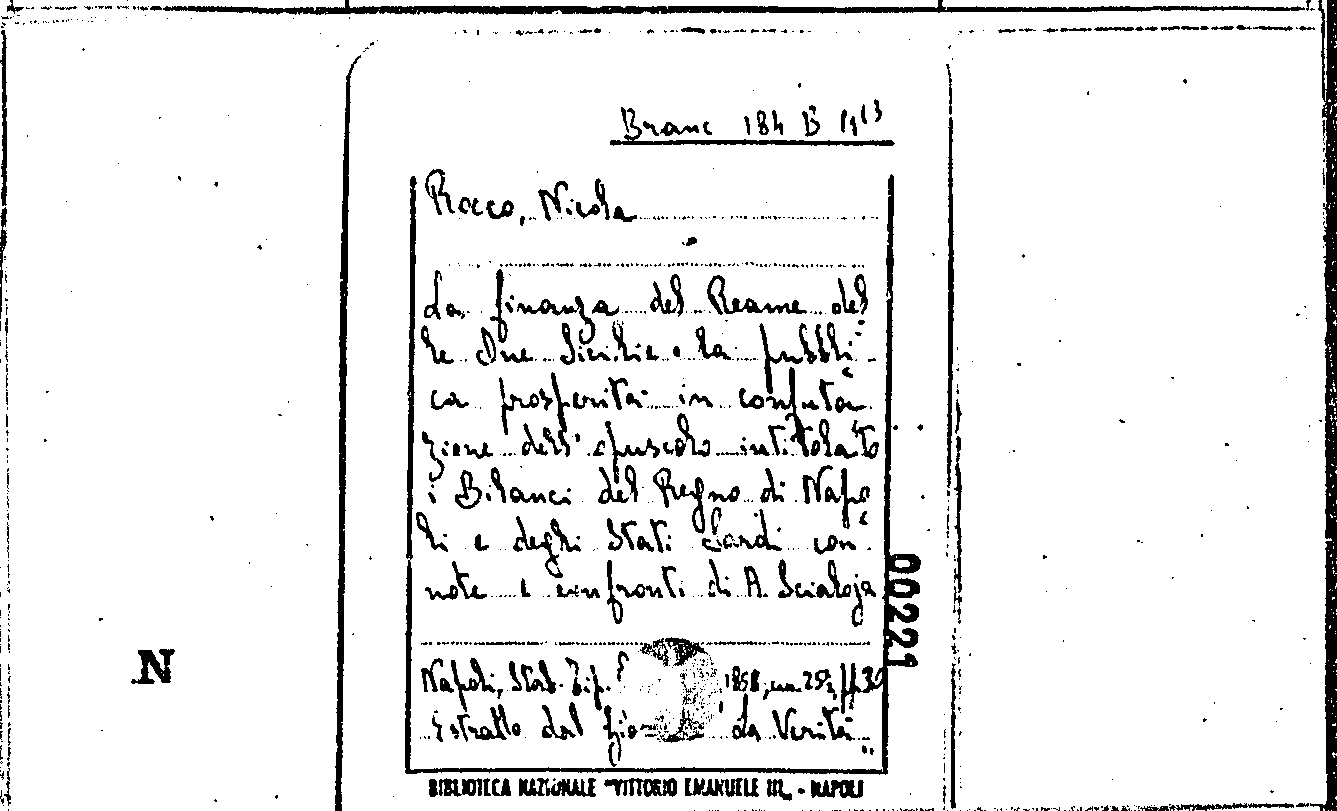 Branc 184 B 11¹³
Rocco, Nicola
La finanza del Reame del
le Due Sicilie e la pubbli
ca prosperità in confuta
zione dell'opuscolo intitolato
i Bilanci del Regno di Napo
li e degli Stati Sardi con
note e confronti di A. Scialoja
Napoli, Stab. Tip. 1858, cm. 25½, pp. 30
Estratto dal gio "La Verità"
BIBLIOTECA NAZIONALE "VITTORIO EMANUELE III" - NAPOLI
00221
N